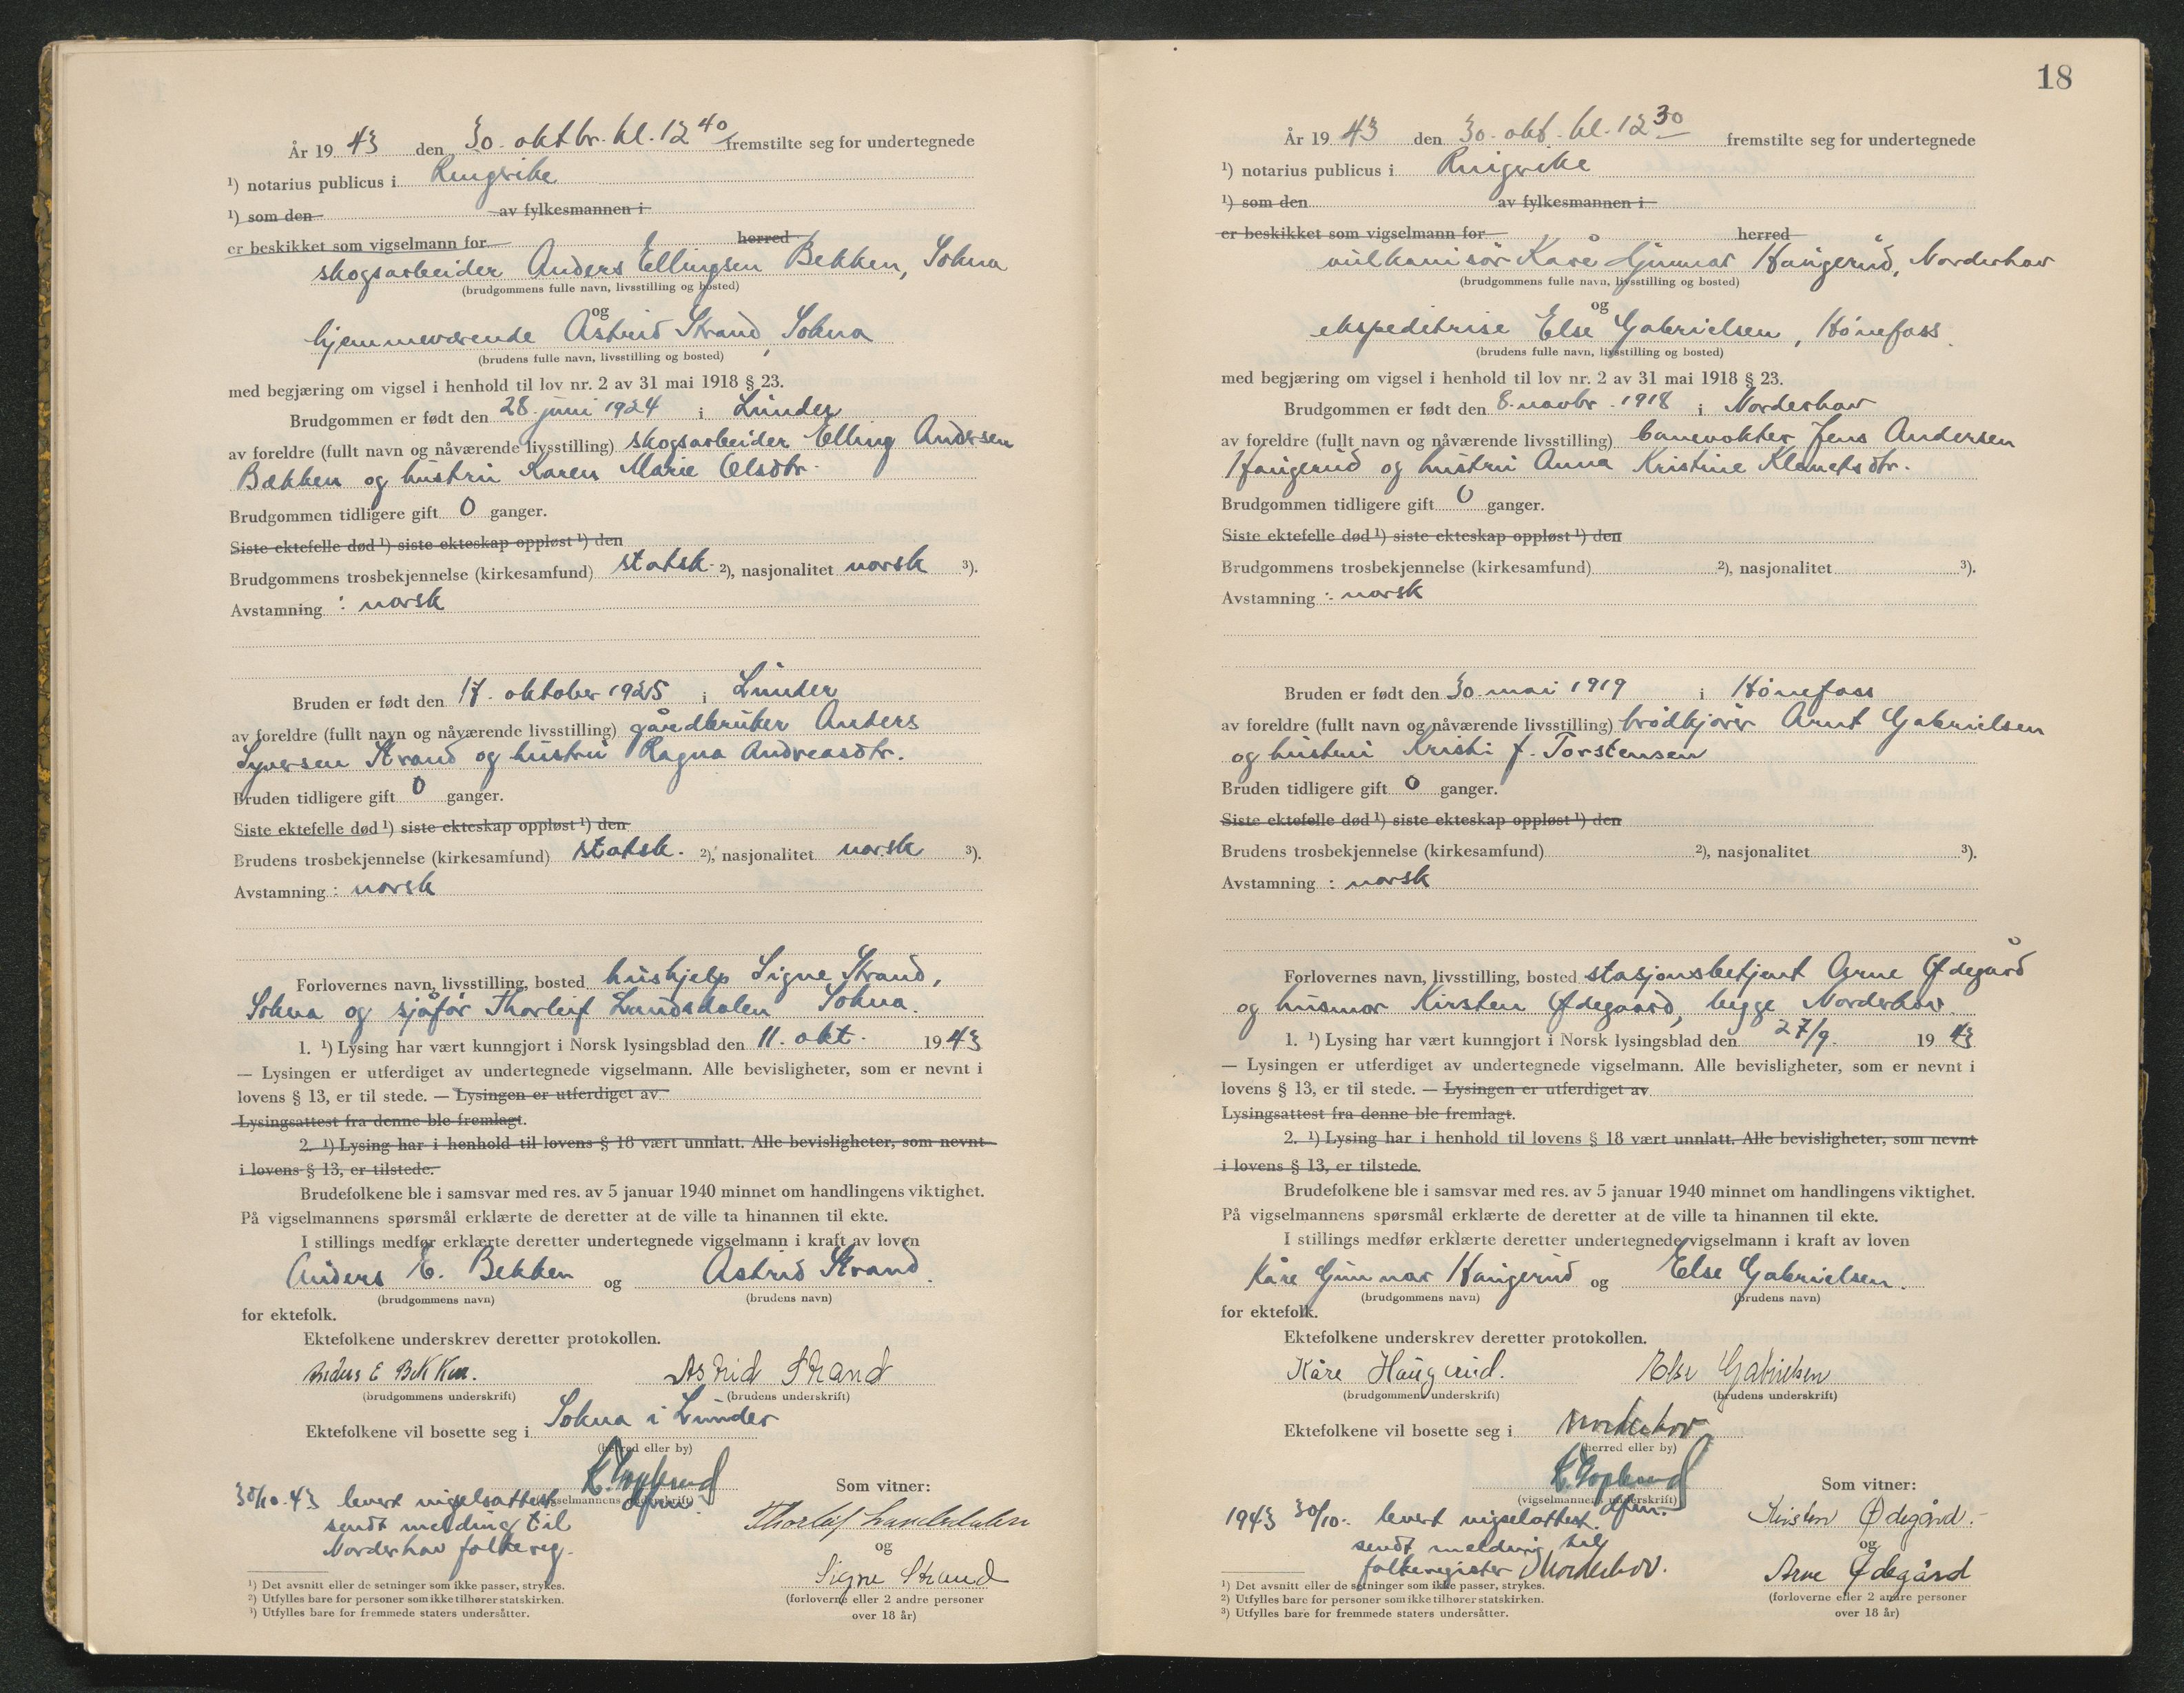 År 1943 den 30. oktbr. kl. 12 40 fremstilte seg for undertegnede
¹) notarius publicus i Ringerike
¹) som den av fylkesmannen i
er beskikket som vigselmann for herred
skogsarbeider Anders Ellingsen Bekken, Sokna
(brudgommens fulle navn, livsstilling og bosted)
og
hjemmeværende Astrid Strand, Sokna
(brudens fulle navn, livsstilling og bosted)
med begjæring om vigsel i henhold til lov nr. 2 av 31 mai 1918 § 23.
Brudgommen er født den 28. juni 1924 i Lunder
av foreldre (fullt navn og nåværende livsstilling) skogsarbeider Elling Andersen
Bækken og hustru Karen Marie Olsdtr.
Brudgommen tidligere gift 0 ganger.
Siste ektefelle død ¹) siste ekteskap oppløst ¹) den
Brudgommens trosbekjennelse (kirkesamfund) statsk. ²), nasjonalitet norsk ³).
Avstamning : norsk
Bruden er født den 17. oktober 1925 i Lunder
av foreldre (fullt navn og nåværende livsstilling) gårdbruker Anders
Syversen Strand og hustru Ragna Andreasdtr.
Bruden tidligere gift 0 ganger.
Siste ektefelle død ¹) siste ekteskap oppløst ¹) den
Brudens trosbekjennelse (kirkesamfund) statsk. ²), nasjonalitet norsk ³).
Avstamning : norsk
Forlovernes navn, livsstilling, bosted hushjelp Signe Strand,
Sokna og sjåfør Thorleif Landsdalen Sokna.
1. ¹) Lysing har vært kunngjort i Norsk lysingsblad den 11. okt. 1943
— Lysingen er utferdiget av undertegnede vigselmann. Alle bevisligheter, som er nevnt i
lovens § 13, er til stede. — Lysingen er utferdiget av
Lysingsattest fra denne ble fremlagt.
2. ¹) Lysing har i henhold til lovens § 18 vært unnlatt. Alle bevisligheter, som nevnt
i lovens § 13, er tilstede.
Brudefolkene ble i samsvar med res. av 5 januar 1940 minnet om handlingens viktighet.
På vigselmannens spørsmål erklærte de deretter at de ville ta hinannen til ekte.
I stillings medfør erklærte deretter undertegnede vigselmann i kraft av loven
Anders E. Bekken og Astrid Strand.
(brudgommens navn) (brudens navn)
for ektefolk.
Ektefolkene underskrev deretter protokollen.
Anders E Bekken. Astrid Strand
(brudgommens underskrift) (brudens underskrift)
Ektefolkene vil bosette seg i Sokna i Lunder
(herred eller by)
(vigselmannens underskrift)
Som vitner:
30/10.43 levert vigselsattest
sendt melding til
Norderhov folkereg.
Thorleif Landsdalen
og
Signe Strand
(forloverne eller 2 andre personer
over 18 år)
¹) Det avsnitt eller de setninger som ikke passer, strykes.
²) Utfylles bare for personer som ikke tilhører statskirken.
³) Utfylles bare for fremmede staters undersåtter.
18
År 1943 den 30. okt. kl. 12 30 fremstilte seg for undertegnede
¹) notarius publicus i Ringerike
¹) som den av fylkesmannen i
er beskikket som vigselmann for herred
vulkanisør Kåre Gunnar Haugerud, Norderhov
(brudgommens fulle navn, livsstilling og bosted)
og
ekspeditrise Else Gabrielsen, Hønefoss.
(brudens fulle navn, livsstilling og bosted)
med begjæring om vigsel i henhold til lov nr. 2 av 31 mai 1918 § 23.
Brudgommen er født den 8. novbr. 1918 i Norderhov
av foreldre (fullt navn og nåværende livsstilling) banevokter Jens Andersen
Haugerud og hustru Anna Kristine Klemetsdtr.
Brudgommen tidligere gift 0 ganger.
Siste ektefelle død ¹) siste ekteskap oppløst ¹) den
Brudgommens trosbekjennelse (kirkesamfund) ²), nasjonalitet ³).
Avstamning : norsk
Bruden er født den 30. mai 1919 i Hønefoss
av foreldre (fullt navn og nåværende livsstilling) brødkjører Arnt Gabrielsen
og hustru Kristi f. Torstensen
Bruden tidligere gift 0 ganger.
Siste ektefelle død ¹) siste ekteskap oppløst ¹) den
Brudens trosbekjennelse (kirkesamfund) ²), nasjonalitet ³).
Avstamning : norsk
Forlovernes navn, livsstilling, bosted stasjonsbetjent Arne Ødegård
og husmor Kirsten Ødegaard, begge Norderhov.
1. ¹) Lysing har vært kunngjort i Norsk lysingsblad den 27/9. 1943
— Lysingen er utferdiget av undertegnede vigselmann. Alle bevisligheter, som er nevnt i
lovens § 13, er til stede. — Lysingen er utferdiget av
Lysingsattest fra denne ble fremlagt.
2. ¹) Lysing har i henhold til lovens § 18 vært unnlatt. Alle bevisligheter, som nevnt
i lovens § 13, er tilstede.
Brudefolkene ble i samsvar med res. av 5 januar 1940 minnet om handlingens viktighet.
På vigselmannens spørsmål erklærte de deretter at de ville ta hinannen til ekte.
I stillings medfør erklærte deretter undertegnede vigselmann i kraft av loven
Kåre Gunnar Haugerud og Else Gabrielsen.
(brudgommens navn) (brudens navn)
for ektefolk.
Ektefolkene underskrev deretter protokollen.
Kåre Haugerud. Else Gabrielsen
(brudgommens underskrift) (brudens underskrift)
Ektefolkene vil bosette seg i Norderhov
(herred eller by)
(vigselmannens underskrift)
Som vitner:
1943 30/10. levert vigselattest.
sendt melding til
folkeregister Norderhov.
Kirsten Ødegård.
og
Arne Ødegård
(forloverne eller 2 andre personer
over 18 år)
¹) Det avsnitt eller de setninger som ikke passer, strykes.
²) Utfylles bare for personer som ikke tilhører statskirken.
³) Utfylles bare for fremmede staters undersåtter.